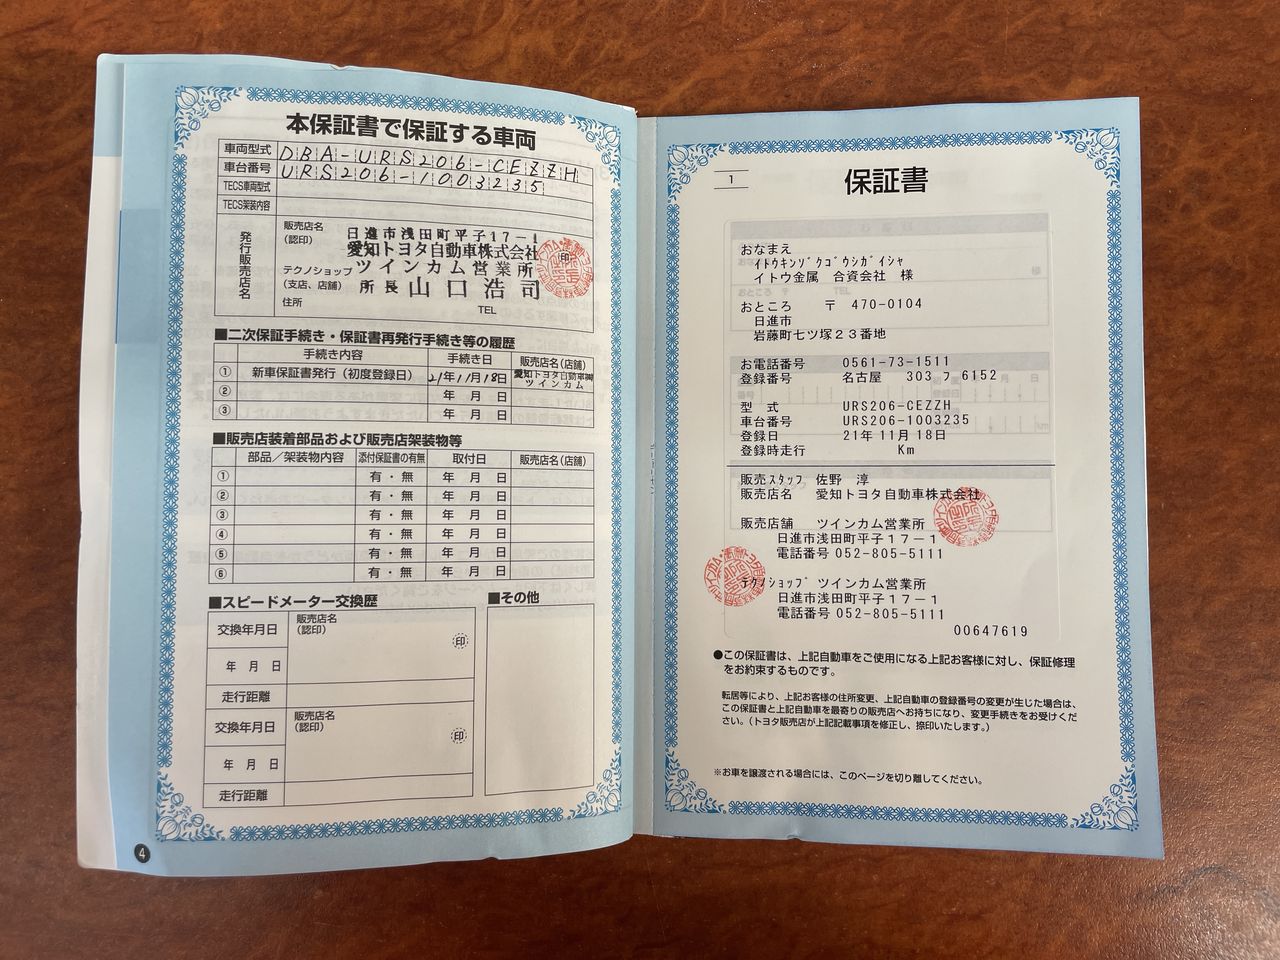 本保証書で保証する車両
車両型式 DBA-URS206-CEZZH
車台番号 URS206-1003235
TECS車両型式
TECS架装内容
発行販売店名
販売店名
(認印)
日進市浅田町平子17-1
愛知トヨタ自動車株式会社
印
テクノショップ ツインカム営業所
(支店、店舗) 所長 山口浩司
住所
TEL
■二次保証手続き・保証書再発行手続き等の履歴
手続き内容 手続き日 販売店名(店舗)
① 新車保証書発行(初度登録日) 21年11月18日 愛知トヨタ自動車㈱
ツインカム
② 年 月 日
③ 年 月 日
■販売店装着部品および販売店架装物等
部品/架装物内容 添付保証書の有無 取付日 販売店名(店舗)
① 有・無 年 月 日
② 有・無 年 月 日
③ 有・無 年 月 日
④ 有・無 年 月 日
⑤ 有・無 年 月 日
⑥ 有・無 年 月 日
■スピードメーター交換歴
交換年月日 販売店名
(認印) 印
年 月 日
走行距離
交換年月日 販売店名
(認印) 印
年 月 日
走行距離
■その他
4
1
保証書
おなまえ
イトウキンゾクゴウシガイシャ
イトウ金属 合資会社 様
おところ 〒 470-0104
日進市
岩藤町七ツ塚23番地
お電話番号 0561-73-1511
登録番号 名古屋 303 フ 6152
型式 URS206-CEZZH
車台番号 URS206-1003235
登録日 21年11月18日
登録時走行 Km
販売スタッフ 佐野 淳
販売店名 愛知トヨタ自動車株式会社
販売店舗 ツインカム営業所
日進市浅田町平子17-1
電話番号 052-805-5111
テクノショップ ツインカム営業所
日進市浅田町平子17-1
電話番号 052-805-5111
00647619
●この保証書は、上記自動車をご使用になる上記お客様に対し、保証修理
をお約束するものです。
転居等により、上記お客様の住所変更、上記自動車の登録番号の変更が生じた場合は、
この保証書と上記自動車を最寄りの販売店へお持ちになり、変更手続きをお受けくだ
さい。(トヨタ販売店が上記記載事項を修正し、捺印いたします。)
※お車を譲渡される場合には、このページを切り離してください。